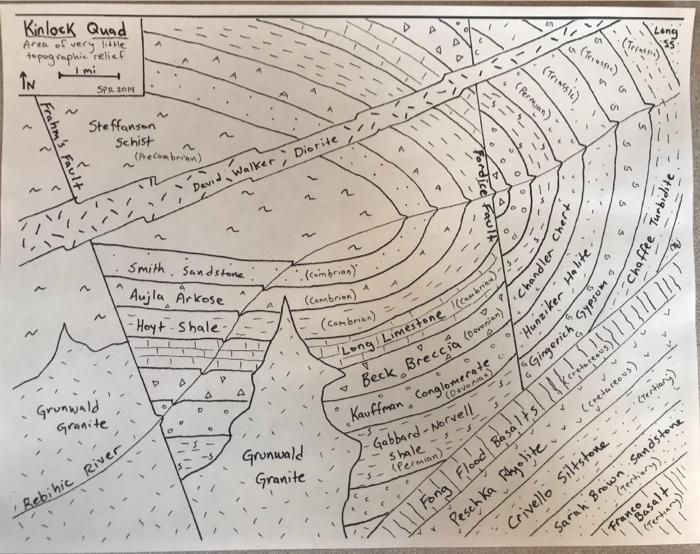 Kinlock Quad
Area of very little
topographic relief
1 mi
N
SPR 2014
Long
SS
(Triassic)
(Triassic)
(Triassic)
(Permian)
Frahm's Fault
Steffanson
Schist
(Precambrian)
David Walker Diorite
Fordice Fault
Smith Sandstone
(Cambrian)
Aujla Arkose
(Cambrian)
Hoyt Shale
(Cambrian)
Long Limestone
(Cambrian)
Beck Breccia
(Devonian)
Kauffman Conglomerate
(Devonian)
Gabbard-Norvell
Shale
(Permian)
Chandler Chert
Hunziker Halite
Gingerich Gypsum
Chaffee Turbidite
Grunwald
Granite
Grunwald
Granite
Rebihic River
Fong Flood Basalts
(Cretaceous)
Peschka Rhyolite
(Cretaceous)
Crivello Siltstone
(Tertiary)
Sarah Brown Sandstone
(Tertiary)
Franco
Basalt
(Tertiary)